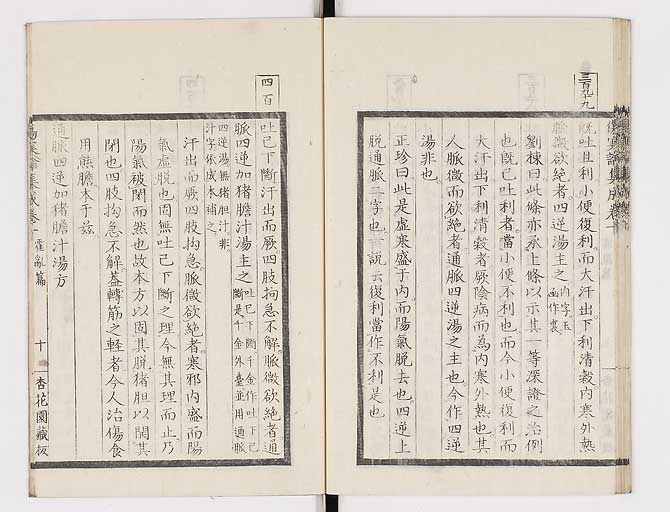 三百九十九
既吐且利小便復利而大汗出下利清穀内寒外熱
脈微欲絶者四逆湯主之内字玉函作裏
劉棟曰此條亦承上條以示其一等深證之治例
也既已吐利者當小便不利也而今小便復利而
大汗出下利清穀者厥陰病而為内寒外熱也其
人脈微而欲絶者通脈四逆湯之主也今作四逆
湯非也
正珍曰此是虚寒盛于内而陽氣脱去也四逆上
脱通脈二字也一説云復利當作不利是也
四百
吐已下斷汗出而厥四肢拘急不解脈微欲絶者通
脈四逆加猪膽汁湯主之吐已下斷千金作吐下已斷是千金外臺並用通脈
四逆湯無猪胆汁非
汗字依成本補之
汗出而厥四肢拘急脈微欲絶者寒邪内盛而陽
氣虚脱也固無吐已下斷之理今無其理而止乃
陽氣被閉而然也故本方以固其脱猪胆以開其
閉也四肢拘急不解蓋轉筋之輕者今人治傷食
用熊膽本于茲
通脈四逆加猪膽汁湯方
霍亂篇
十
杏花園藏板